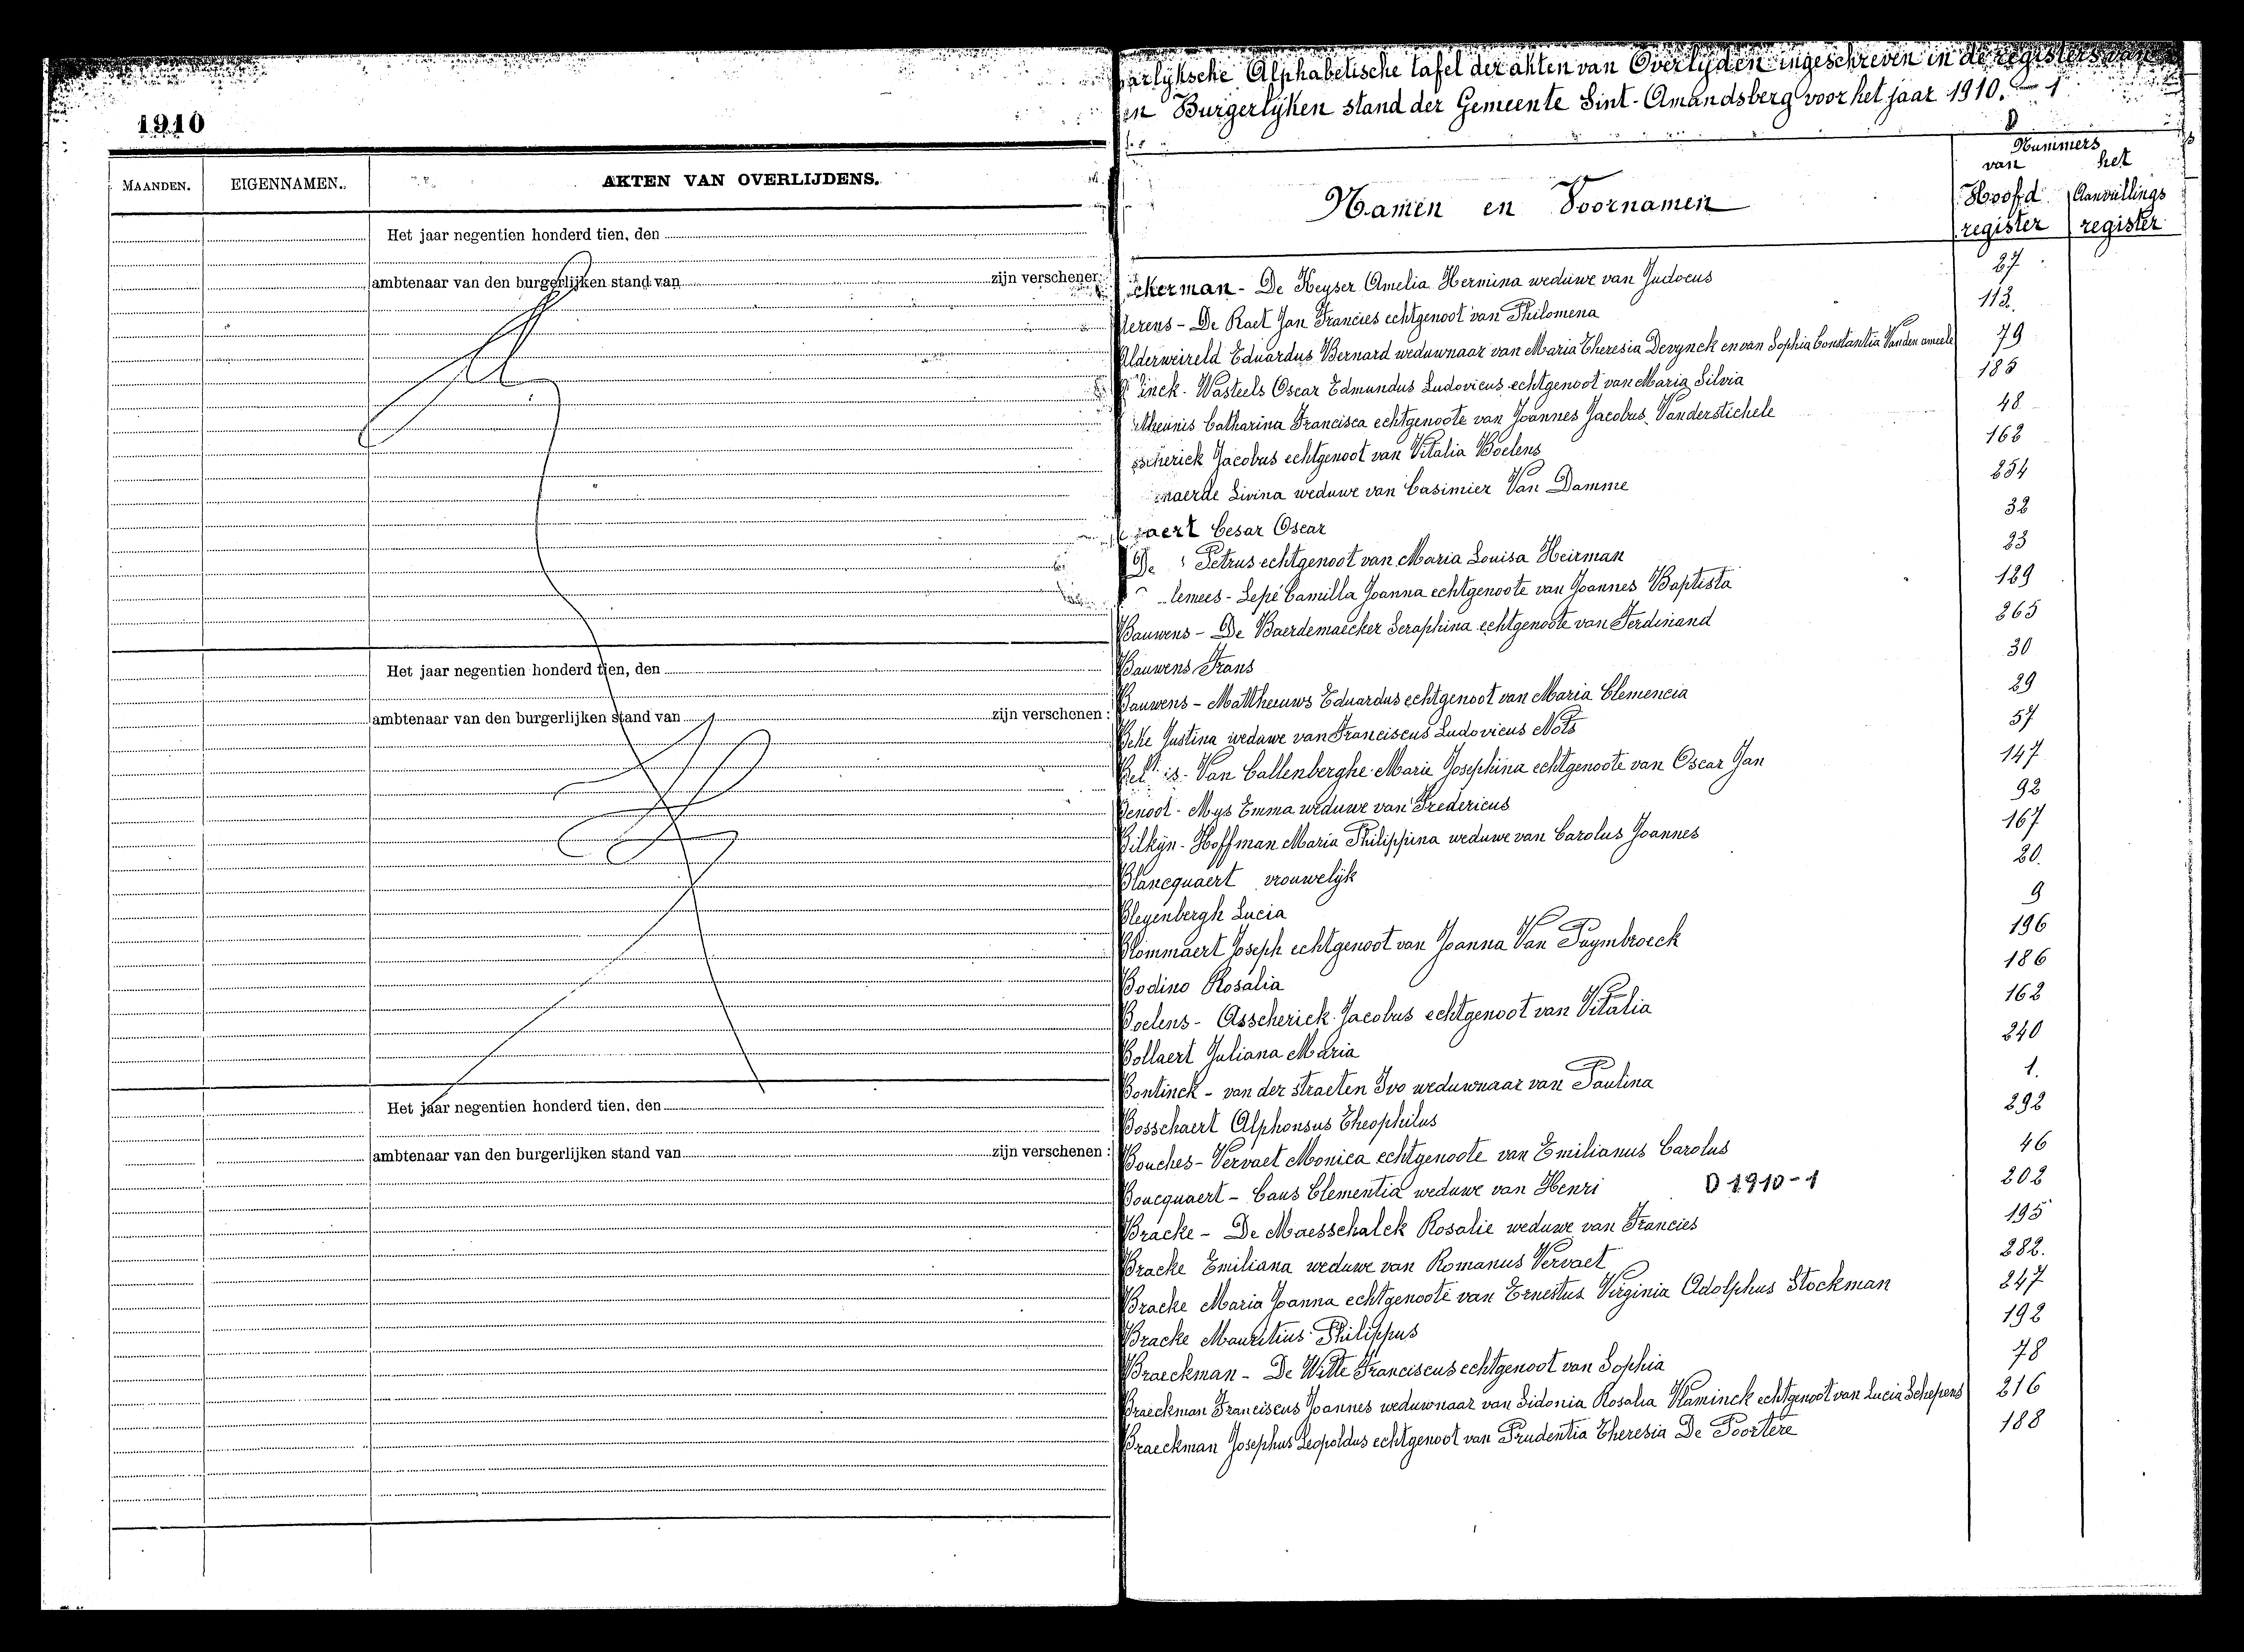 1910
MAANDEN. EIGENNAMEN. AKTEN VAN OVERLIJDENS.
Het jaar negentien honderd tien, den
ambtenaar van den burgerlijken stand van zijn verschenen
Het jaar negentien honderd tien, den
ambtenaar van den burgerlijken stand van zijn verschenen :
Het jaar negentien honderd tien, den
ambtenaar van den burgerlijken stand van zijn verschenen :
arlyksche Alphabetische tafel der akten van Overlyden ingeschreven in de registers van
en Burgerlyken stand der Gemeente Sint-Amandsberg voor het jaar 1910. - 1
D
Nummers
van het
Namen en Voornamen Hoofd Aanvullings
register register
ckerman - De Keyser Amelia Hermina weduwe van Judocus 27
lerens - De Raet Jan Francies echtgenoot van Philomena 112.
Alderweireld Eduardus Bernard weduwnaar van Maria Theresia Devynck en van Sophia Constantia Vanden ameele 79
inck - Wasteels Oscar Edmundus Ludovicus echtgenoot van Maria Silvia 185
Catharina Francisca echtgenoote van Joannes Jacobus Vanderstichele 48
scherick Jacobus echtgenoot van Vitalia Boelens 162
naerde Livina weduwe van Casimier Van Damme 254
aert Cesar Oscar 32
De Petrus echtgenoot van Maria Louisa Heirman 23
lemees - Lepé Camilla Joanna echtgenoote van Joannes Baptista 129
Bauwens - De Baerdemaecker Seraphina echtgenoote van Ferdinand 265
Bauwens Frans 30
Bauwens - Mattheeuws Eduardus echtgenoot van Maria Clemencia 29
Beke Justina weduwe van Franciscus Ludovicus Nots 57
Bel is - Van Callenberghe Marie Josephina echtgenoote van Oscar Jan 147
Benoot - Mys Emma weduwe van Fredericus 92
Bilkyn - Hoffman Maria Philippina weduwe van Carolus Joannes 167
Blancquaert vrouwelijk 20.
Bleyenbergh Lucia 9
Blommaert Joseph echtgenoot van Joanna Van Puymbroeck 196
Bodino Rosalia 186
Boelens - Asscherick Jacobus echtgenoot van Vitalia 162
Bollaert Juliana Maria 240
Bontinck - van der straeten Ivo weduwnaar van Paulina 1.
Bosschaert Alphonsus Theophilus 292
Bouches - Vervaet Monica echtgenoote van Emilianus Carolus 46
Boucquaert - Caus Clementia weduwe van Henri D 1910-1 202
Bracke - De Maesschalck Rosalie weduwe van Francies 195
Bracke Emiliana weduwe van Romanus Vervaet 282.
Bracke Maria Joanna echtgenoote van Ernestus Virginia Adolphus Stockman 247
Bracke Mauritius Philippus 192
Braeckman - De Witte Franciscus echtgenoot van Sophia 78
Braeckman Franciscus Joannes weduwnaar van Sidonia Rosalia Vlaminck echtgenoot van Lucia Schepens 216
Braeckman Josephus Leopoldus echtgenoot van Prudentia Theresia De Poortere 188